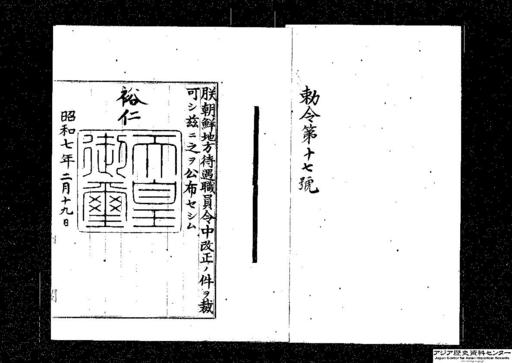 勅令第十七號
朕朝鮮地方待遇職員令中改正ノ件ヲ裁
可シ茲ニ之ヲ公布セシム
裕仁
天皇
御璽
昭和七年二月十九日
アジア歴史資料センター
Japan Center for Asian Historical Records